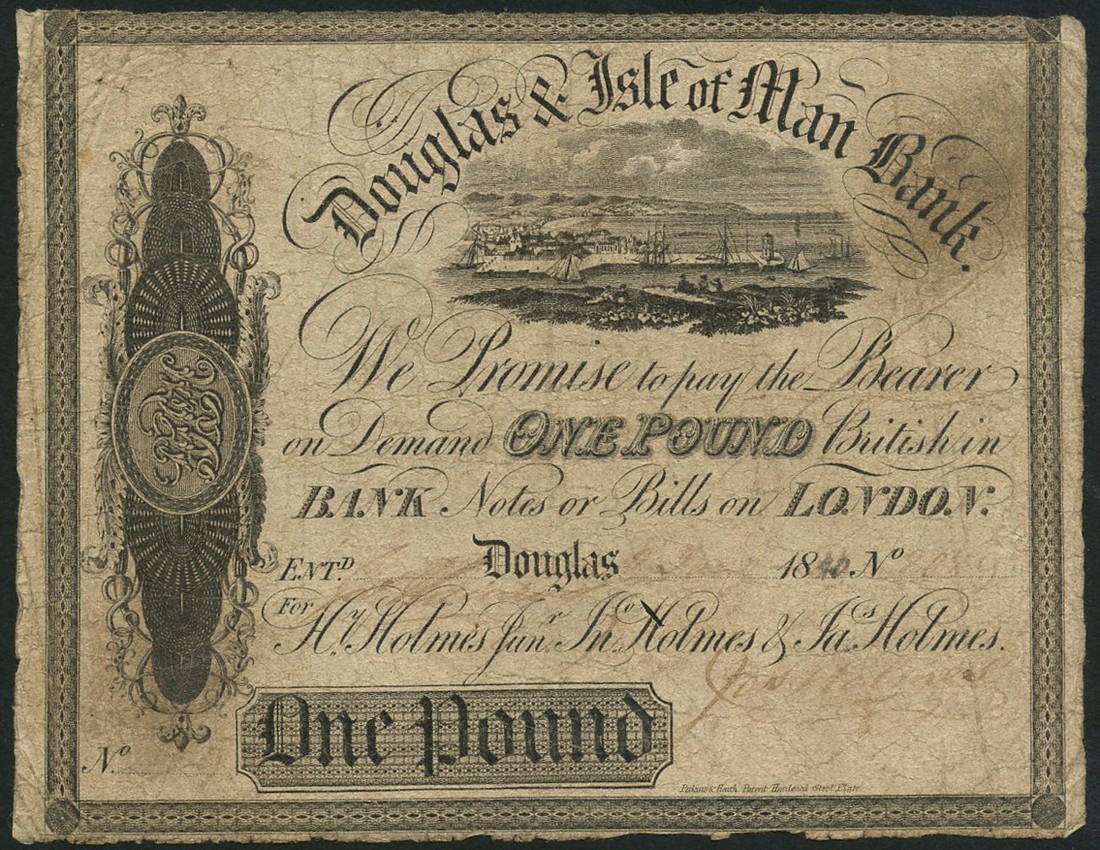 Douglas & Isle of Man Bank.
We Promise to pay the Bearer
on Demand ONE POUND British in
BANK Notes or Bills on LONDON.
ENT.D Douglas 18 No
For
Hy. Holmes Junr. Jno Holmes & Jas Holmes.
One Pound
No.
Perkins & Heath Patent Hardened Steel Plate